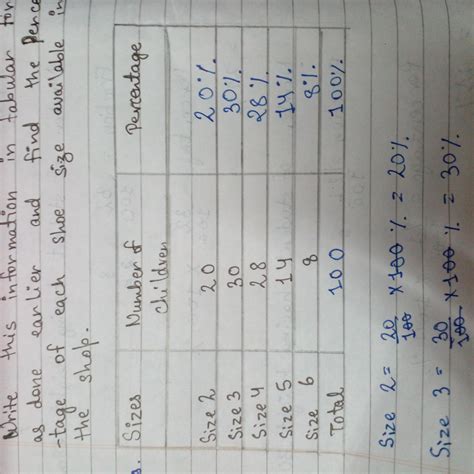 Write this information in tabular for
as done earlier and find the perce
-tage of each shoe size available in
the shop.
s.
Sizes Number of children Percentage
Size 2 20 20%
Size 3 30 30%
Size 4 28 28%
Size 5 14 14%
Size 6 8 8%
Total 100 100%
Size 2 = 20/100 × 100 % = 20%
Size 3 = 30/100 × 100 % = 30%